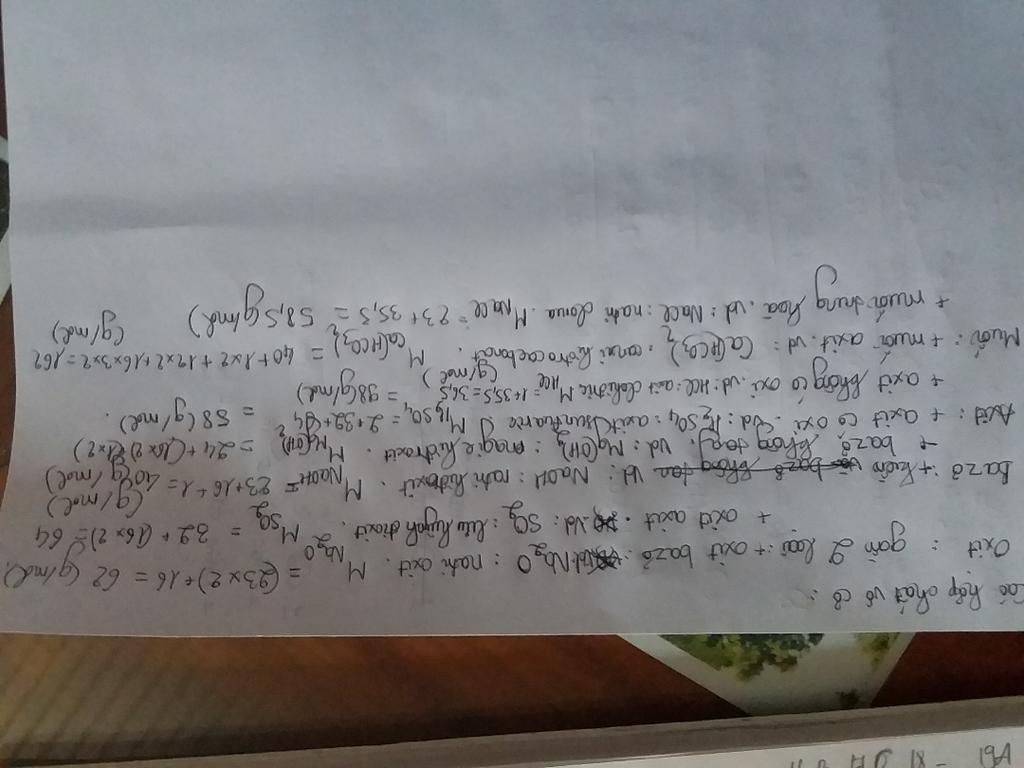 Các hợp chất vô cơ:
Oxit : gồm 2 loại + oxit bazơ. vd Na2O : natri oxit. M Na2O = (23 x 2) + 16 = 62 (g/mol).
+ oxit axit. vd: SO2 : lưu huỳnh đioxit. M SO2 = 32 + (16 x 2) = 64 (g/mol)
Bazơ + kiềm vd: NaOH : natri hidroxit. M NaOH = 23+16+1 = 40 (g/mol)
+ bazơ không tan. vd: Mg(OH)2 : magie hidroxit. M Mg(OH)2 = 24 + (16 x 2) + (1 x 2) = 58 (g/mol).
Axit : + axit có oxi. vd: H2SO4 : axit sunfuaric M H2SO4 = 2+32+64 = 98 (g/mol)
+ axit không có oxi. vd: HCl : axit clohidric M HCl = 1+35,5 = 36,5 (g/mol)
Muối : + muối axit : vd: Ca(HCO3)2 : canxi hidrocacbonat. M Ca(HCO3)2 = 40 + 1x2 + 12x2 + 16x3x2 = 162 (g/mol)
+ muối trung hoà. vd: NaCl : natri clorua. M NaCl = 23 + 35,5 = 58,5 (g/mol)